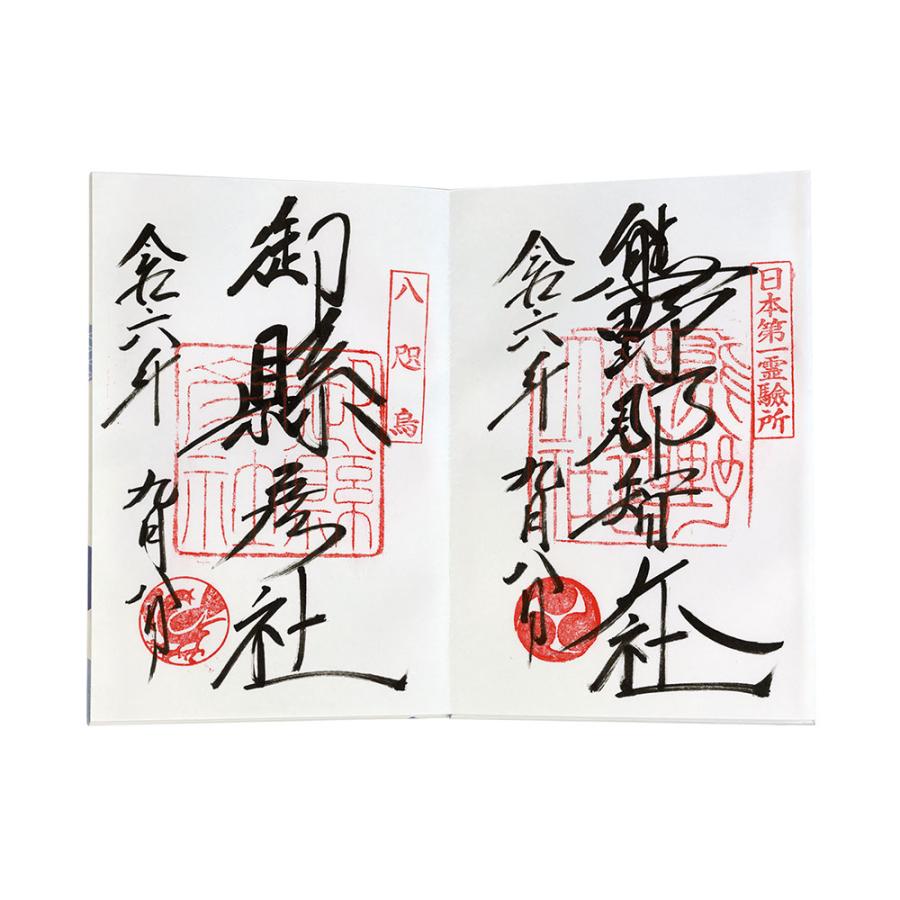 日本第一霊験所
熊野那智大社
令和六年九月八日
八咫烏
御縣彦社
令和六年九月八日